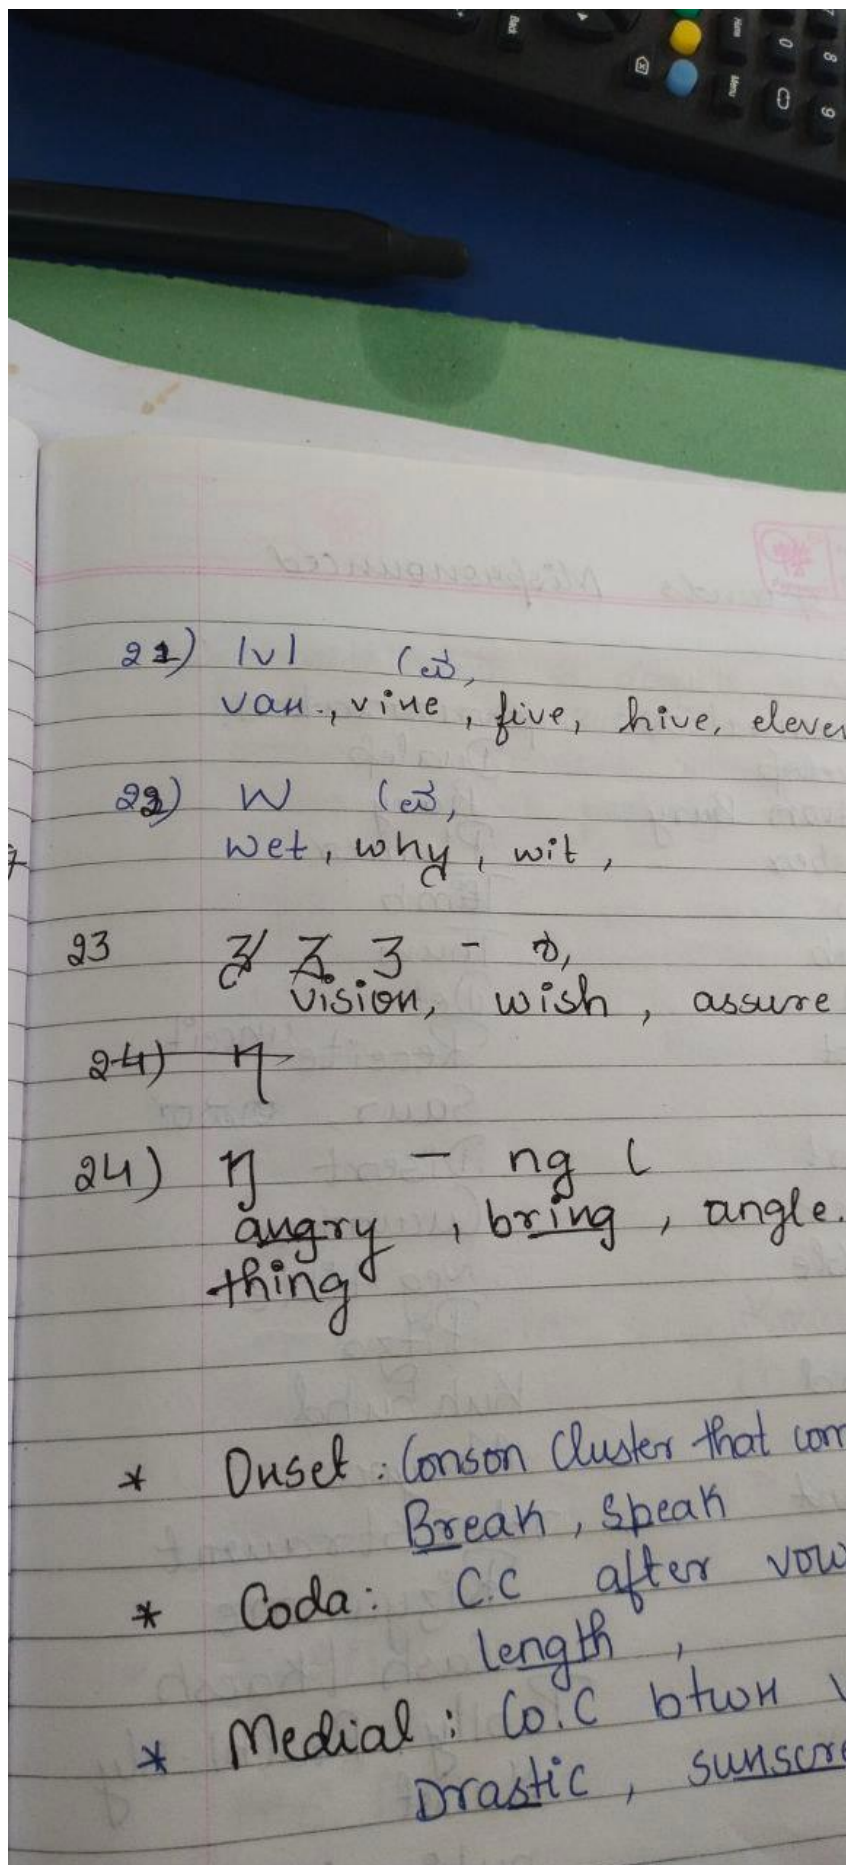 Back
Home
Menu
0
8
9
Mispronounced
21) |v| (ವ,
van., vine, five, hive, eleven
22) W (ವ,
wet, why, wit,
23 ʒ - ಶ,
vision, wish, assure
24) η
24) ŋ - ng (
angry, bring, angle.
thing
* Onset: Conson Cluster that com
Break, speak
* Coda: C.C after vow
length,
* Medial: Co.C btwn
Drastic, sunscre